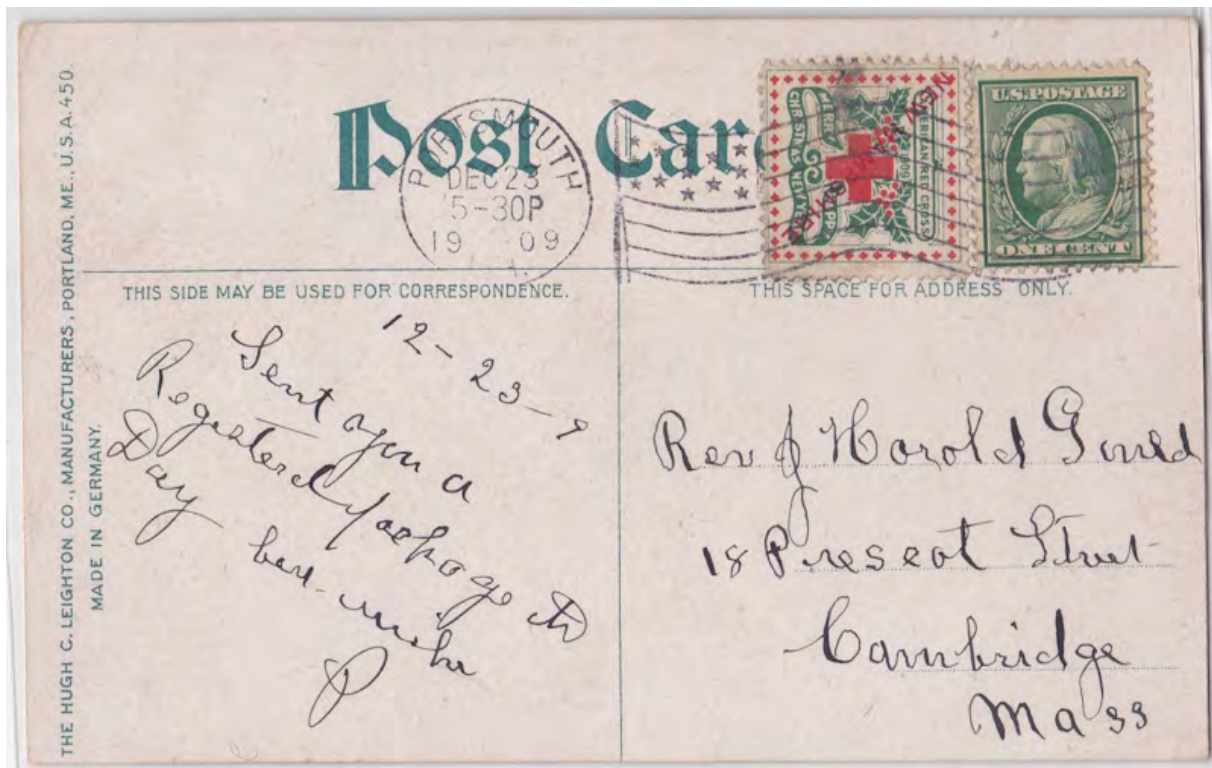 THE HUGH C. LEIGHTON CO., MANUFACTURERS, PORTLAND, ME., U.S.A. 450.
MADE IN GERMANY.
Post Card
PORTSMOUTH
DEC 23
5-30P
19 09
N.H.
AMERICAN RED CROSS
1909
MERRY CHRISTMAS
HAPPY NEW YEAR
NEW HAMPSHIRE
U.S. POSTAGE
ONE CENT
THIS SIDE MAY BE USED FOR CORRESPONDENCE.
THIS SPACE FOR ADDRESS ONLY.
12-23-9
Sent you a
Registerd package to
Day best wishes
P
Rev J Harold Gould
18 Prescot Street
Cambridge
Mass